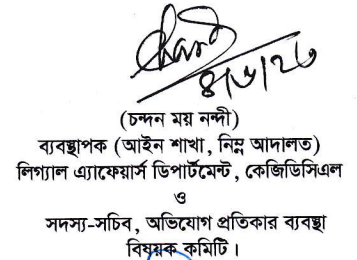 (চন্দন ময় নন্দী)
ব্যবস্থাপক (আইন শাখা, নিম্ন আদালত)
লিগ্যাল এ্যাফেয়ার্স ডিপার্টমেন্ট, কেজিডিসিএল
ও
সদস্য-সচিব, অভিযোগ প্রতিকার ব্যবস্থা
বিষয়ক কমিটি।